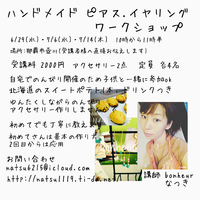 ハンドメイド ピアス・イヤリング
ワークショップ
6/29(水)・7/6(水)・7/14(木) 10時から11時半
場所:那覇市壺川(受講者様へ直接お伝えします)
受講料 2000円 アクセサリー2点 定員 各4名
自宅でのんびり開催のため子供と一緒に参加ok
北海道のスイートポテト1本・ドリンクつき
ゆんたくしながらのんびり
アクセサリー作りしませんか
初めてでも丁寧に教え
初めてさんは基本の作り方
2回目からは応用
お問い合わせ
natsu6215@icloud.com
http://natsu1119.ti-da.net/
講師 bonheur
なつき